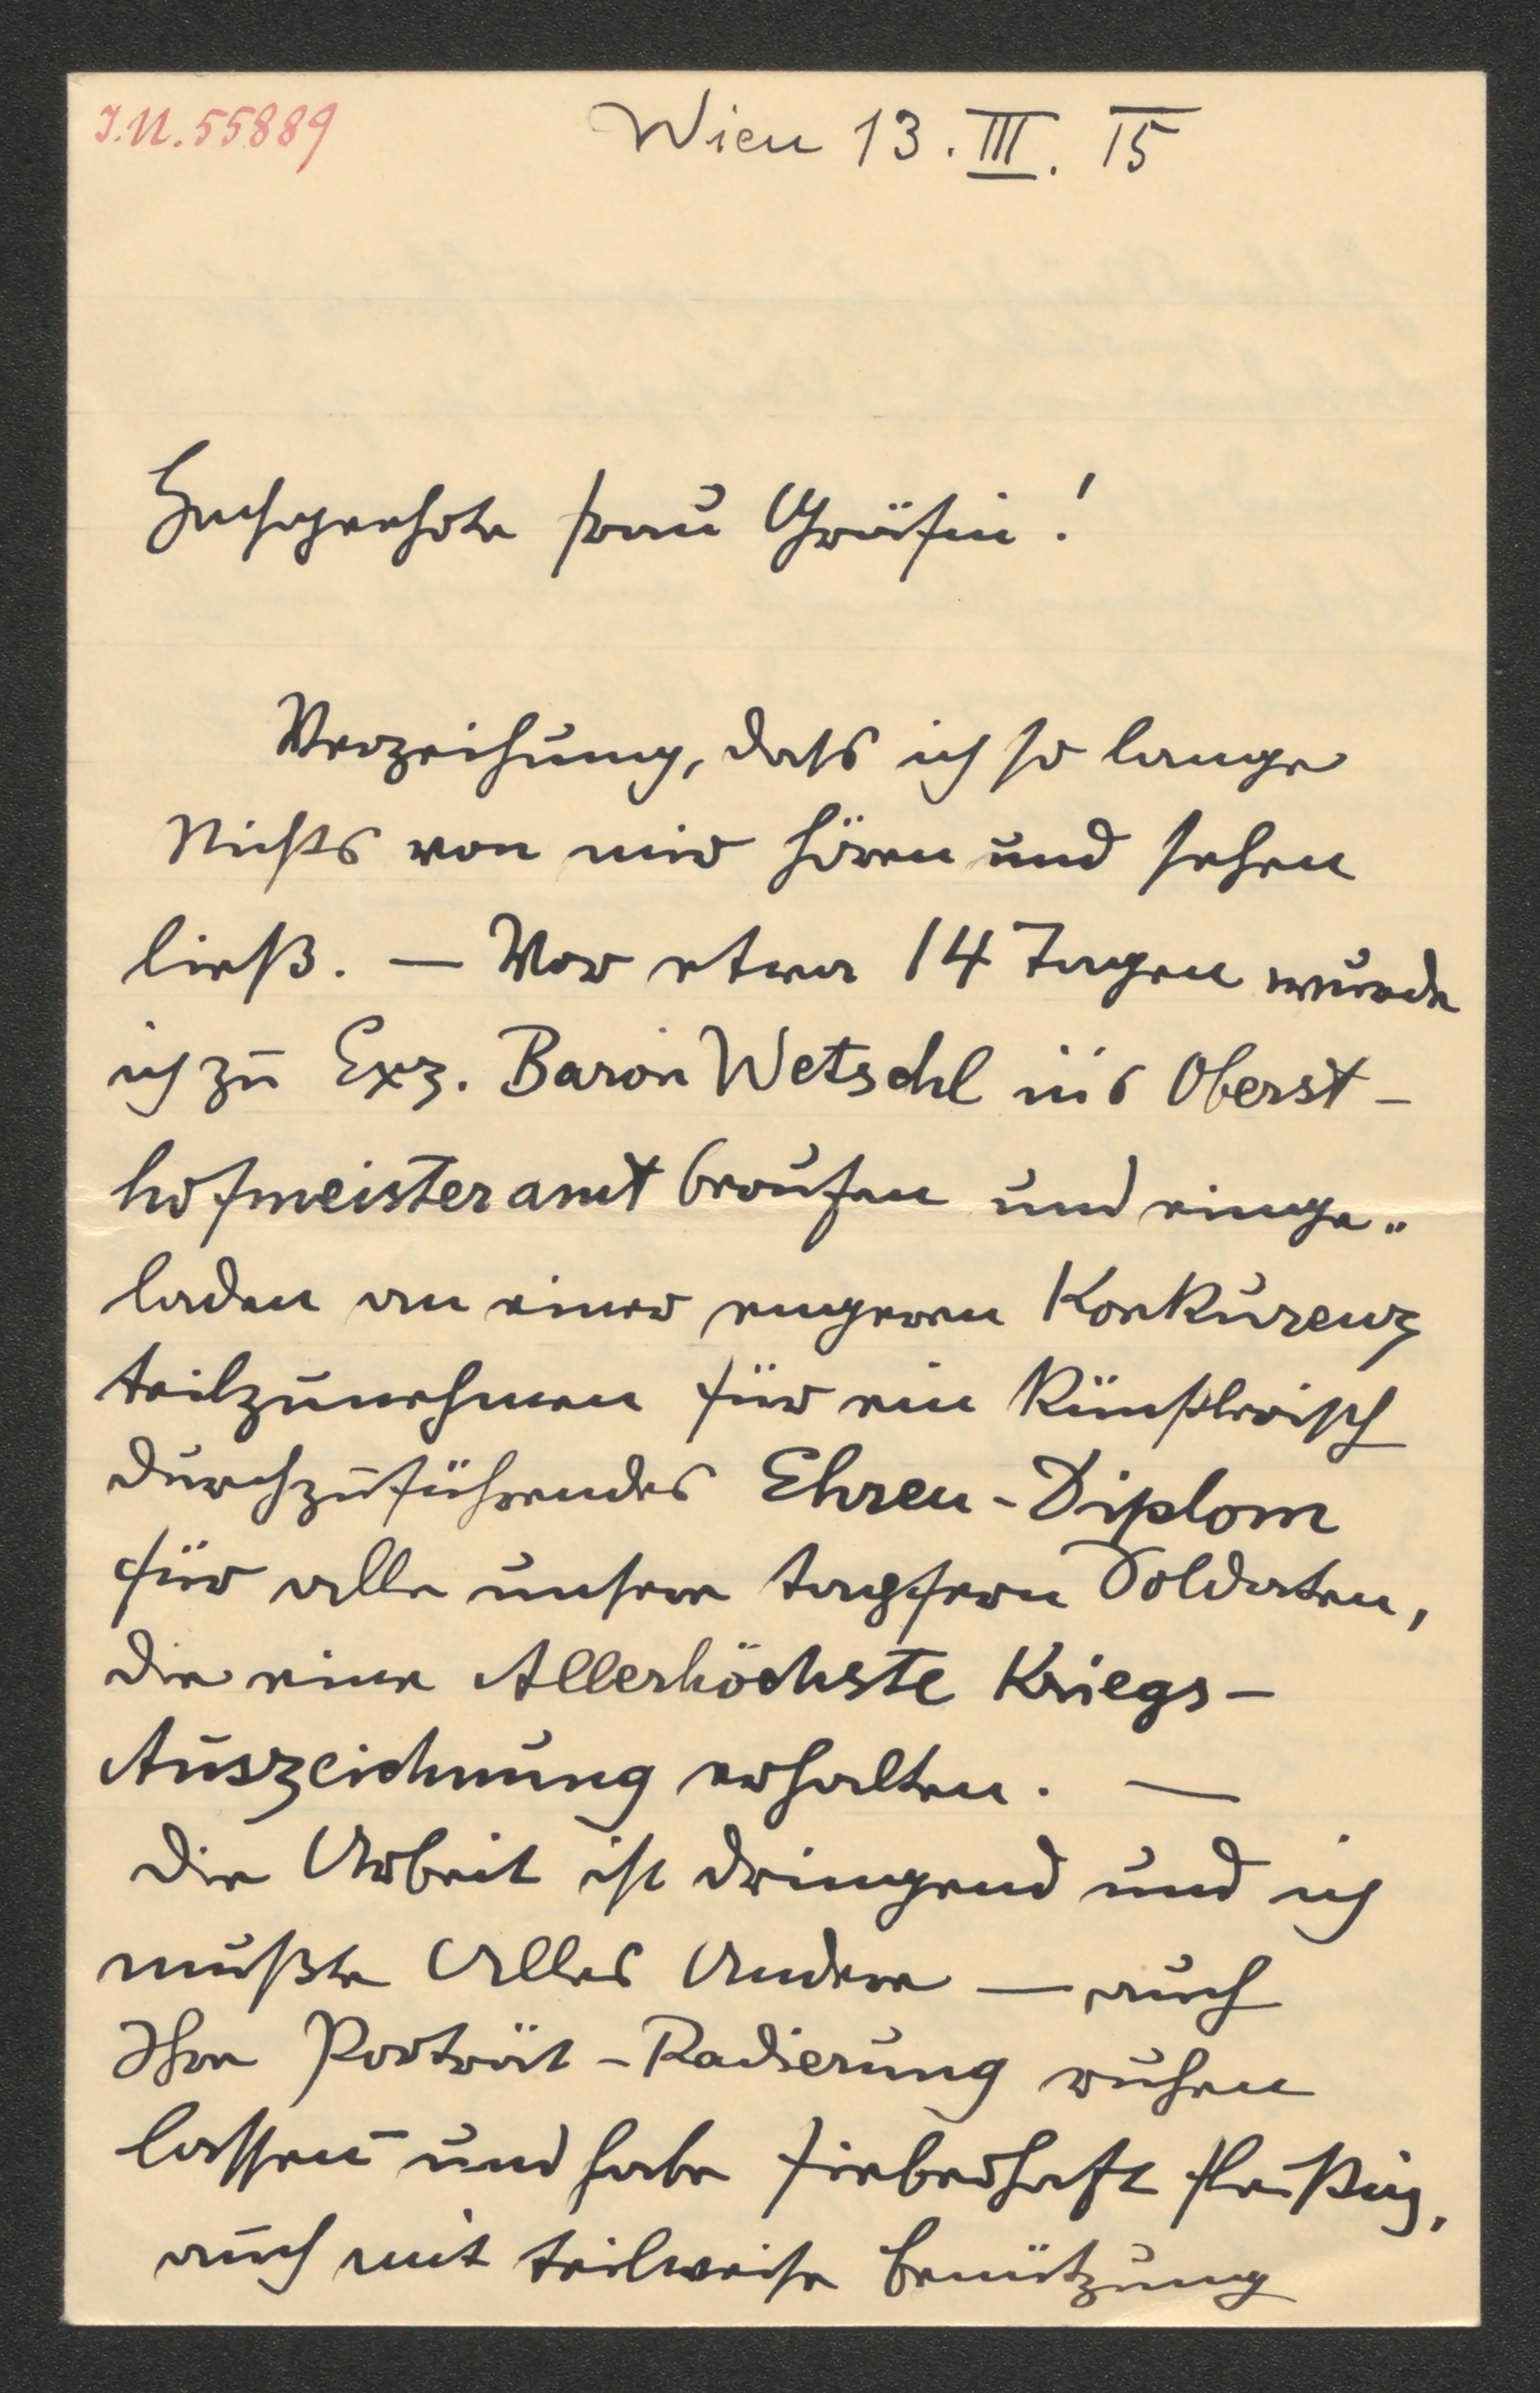 J.N. 55889
Wien 13. III. 15
Hochgeehrte Frau Gräfin!
Verzeihung, dass ich so lange
Nichts von mir hören und sehen
ließ. — Vor etwa 14 Tagen wurde
ich zu Exz. Baron Wetschl in's Oberst-
hofmeisteramt berufen und einge-
laden an einer engeren Konkurenz
teilzunehmen für ein künstlerisch
durchzuführendes Ehren-Diplom
für alle unsere tapferen Soldaten,
die eine Allerhöchste Kriegs-
Auszeichnung erhalten. —
Die Arbeit ist dringend und ich
mußte Alles Andere — auch
Ihre Porträt-Radierung ruhen
lassen und habe fieberhaft fleißig,
auch mit teilweise Benützung